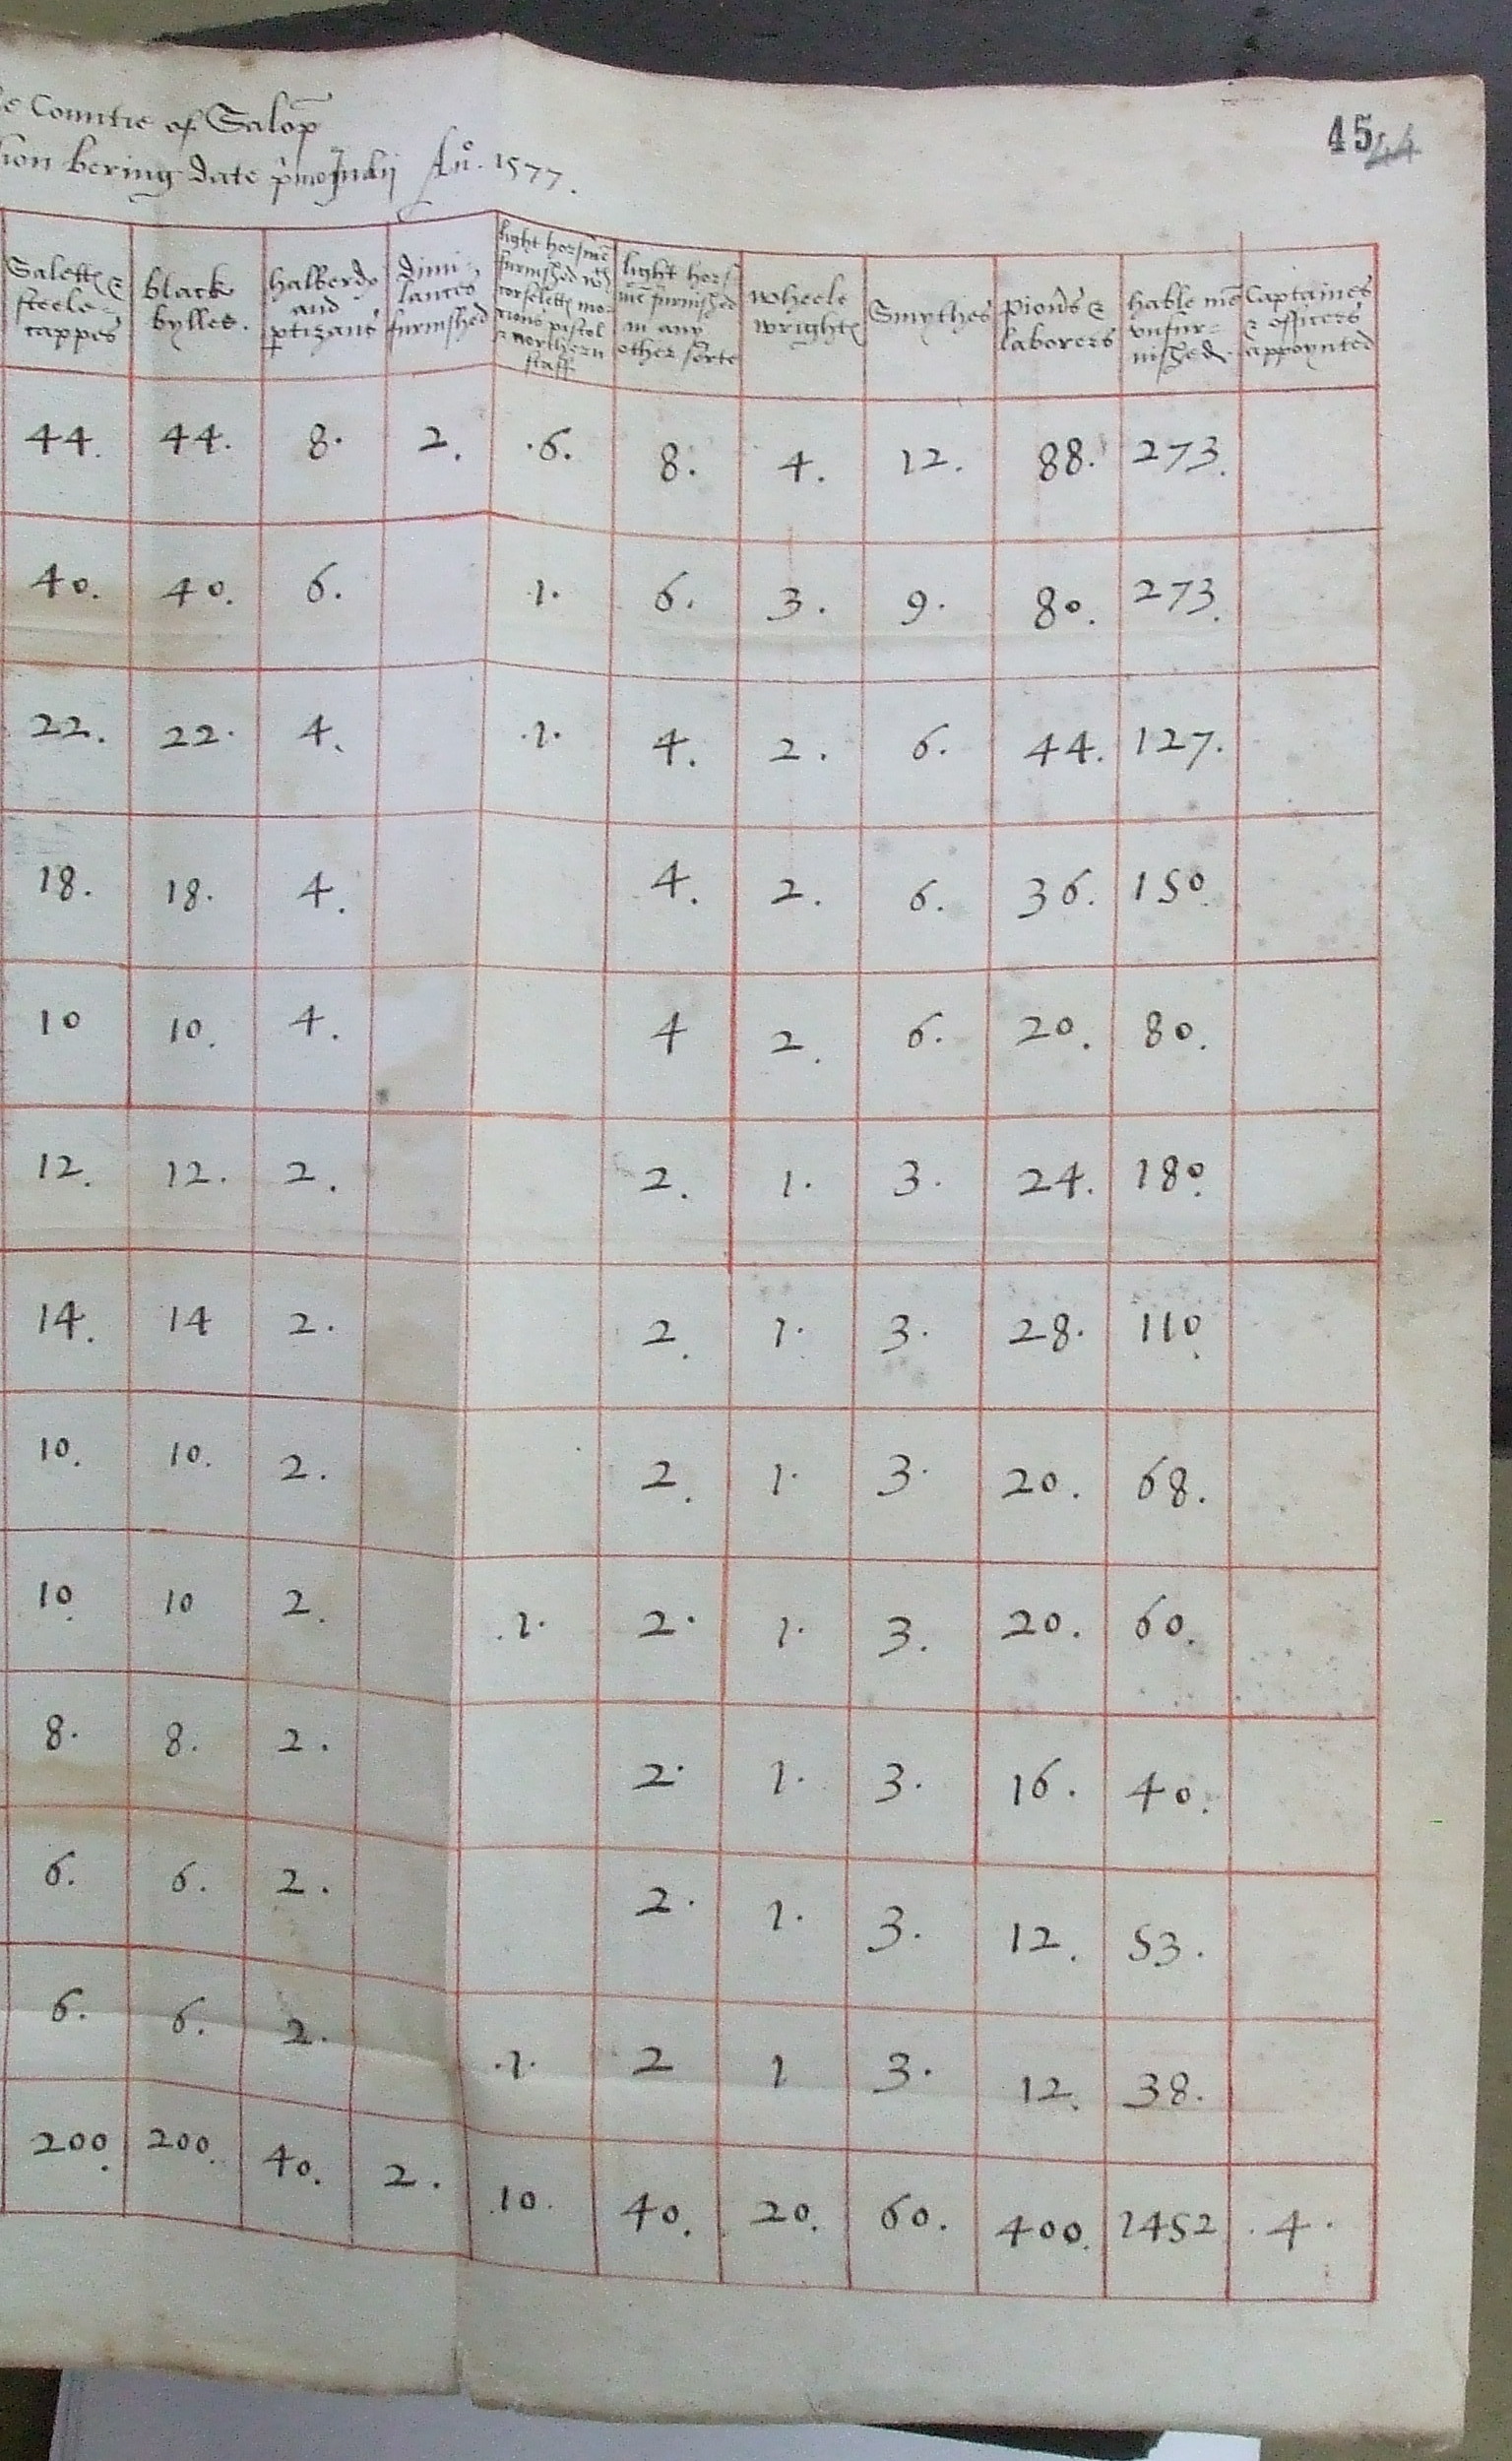 45 44
Countie of Salop
bering date p̄mo Junij An°. 1577.
Saletts & steele-cappes | black bylles. | halberds and ptizans | dimi-lances furnished | light horsmē furnished wth corseletts mo-rions pistol & northern staff | light hors mē furnished in any other sorte | wheele wrights | Smythes | pion̄s & laborers | hable mē vnfur-nished. | Captaines & officers appoynted
44. | 44. | 8. | 2. | .6. | 8. | 4. | 12. | 88. | 273.
40. | 40. | 6. | | 1. | 6. | 3. | 9. | 80. | 273.
22. | 22. | 4. | | .1. | 4. | 2. | 6. | 44. | 127.
18. | 18. | 4. | | | 4. | 2. | 6. | 36. | 150.
10 | 10. | 4. | | | 4 | 2. | 6. | 20. | 80.
12. | 12. | 2. | | | 2. | 1. | 3. | 24. | 180.
14. | 14 | 2. | | | 2. | 1. | 3. | 28. | 110.
10. | 10. | 2. | | | 2. | 1. | 3. | 20. | 68.
10. | 10 | 2. | | .1. | 2. | 1. | 3. | 20. | 60.
8. | 8. | 2. | | | 2. | 1. | 3. | 16. | 40.
6. | 6. | 2. | | | 2. | 1. | 3. | 12. | 53.
6. | 6. | 2. | | .1. | 2 | 1 | 3. | 12. | 38.
200. | 200. | 40. | 2. | 10. | 40. | 20. | 60. | 400. | 1452 | .4.